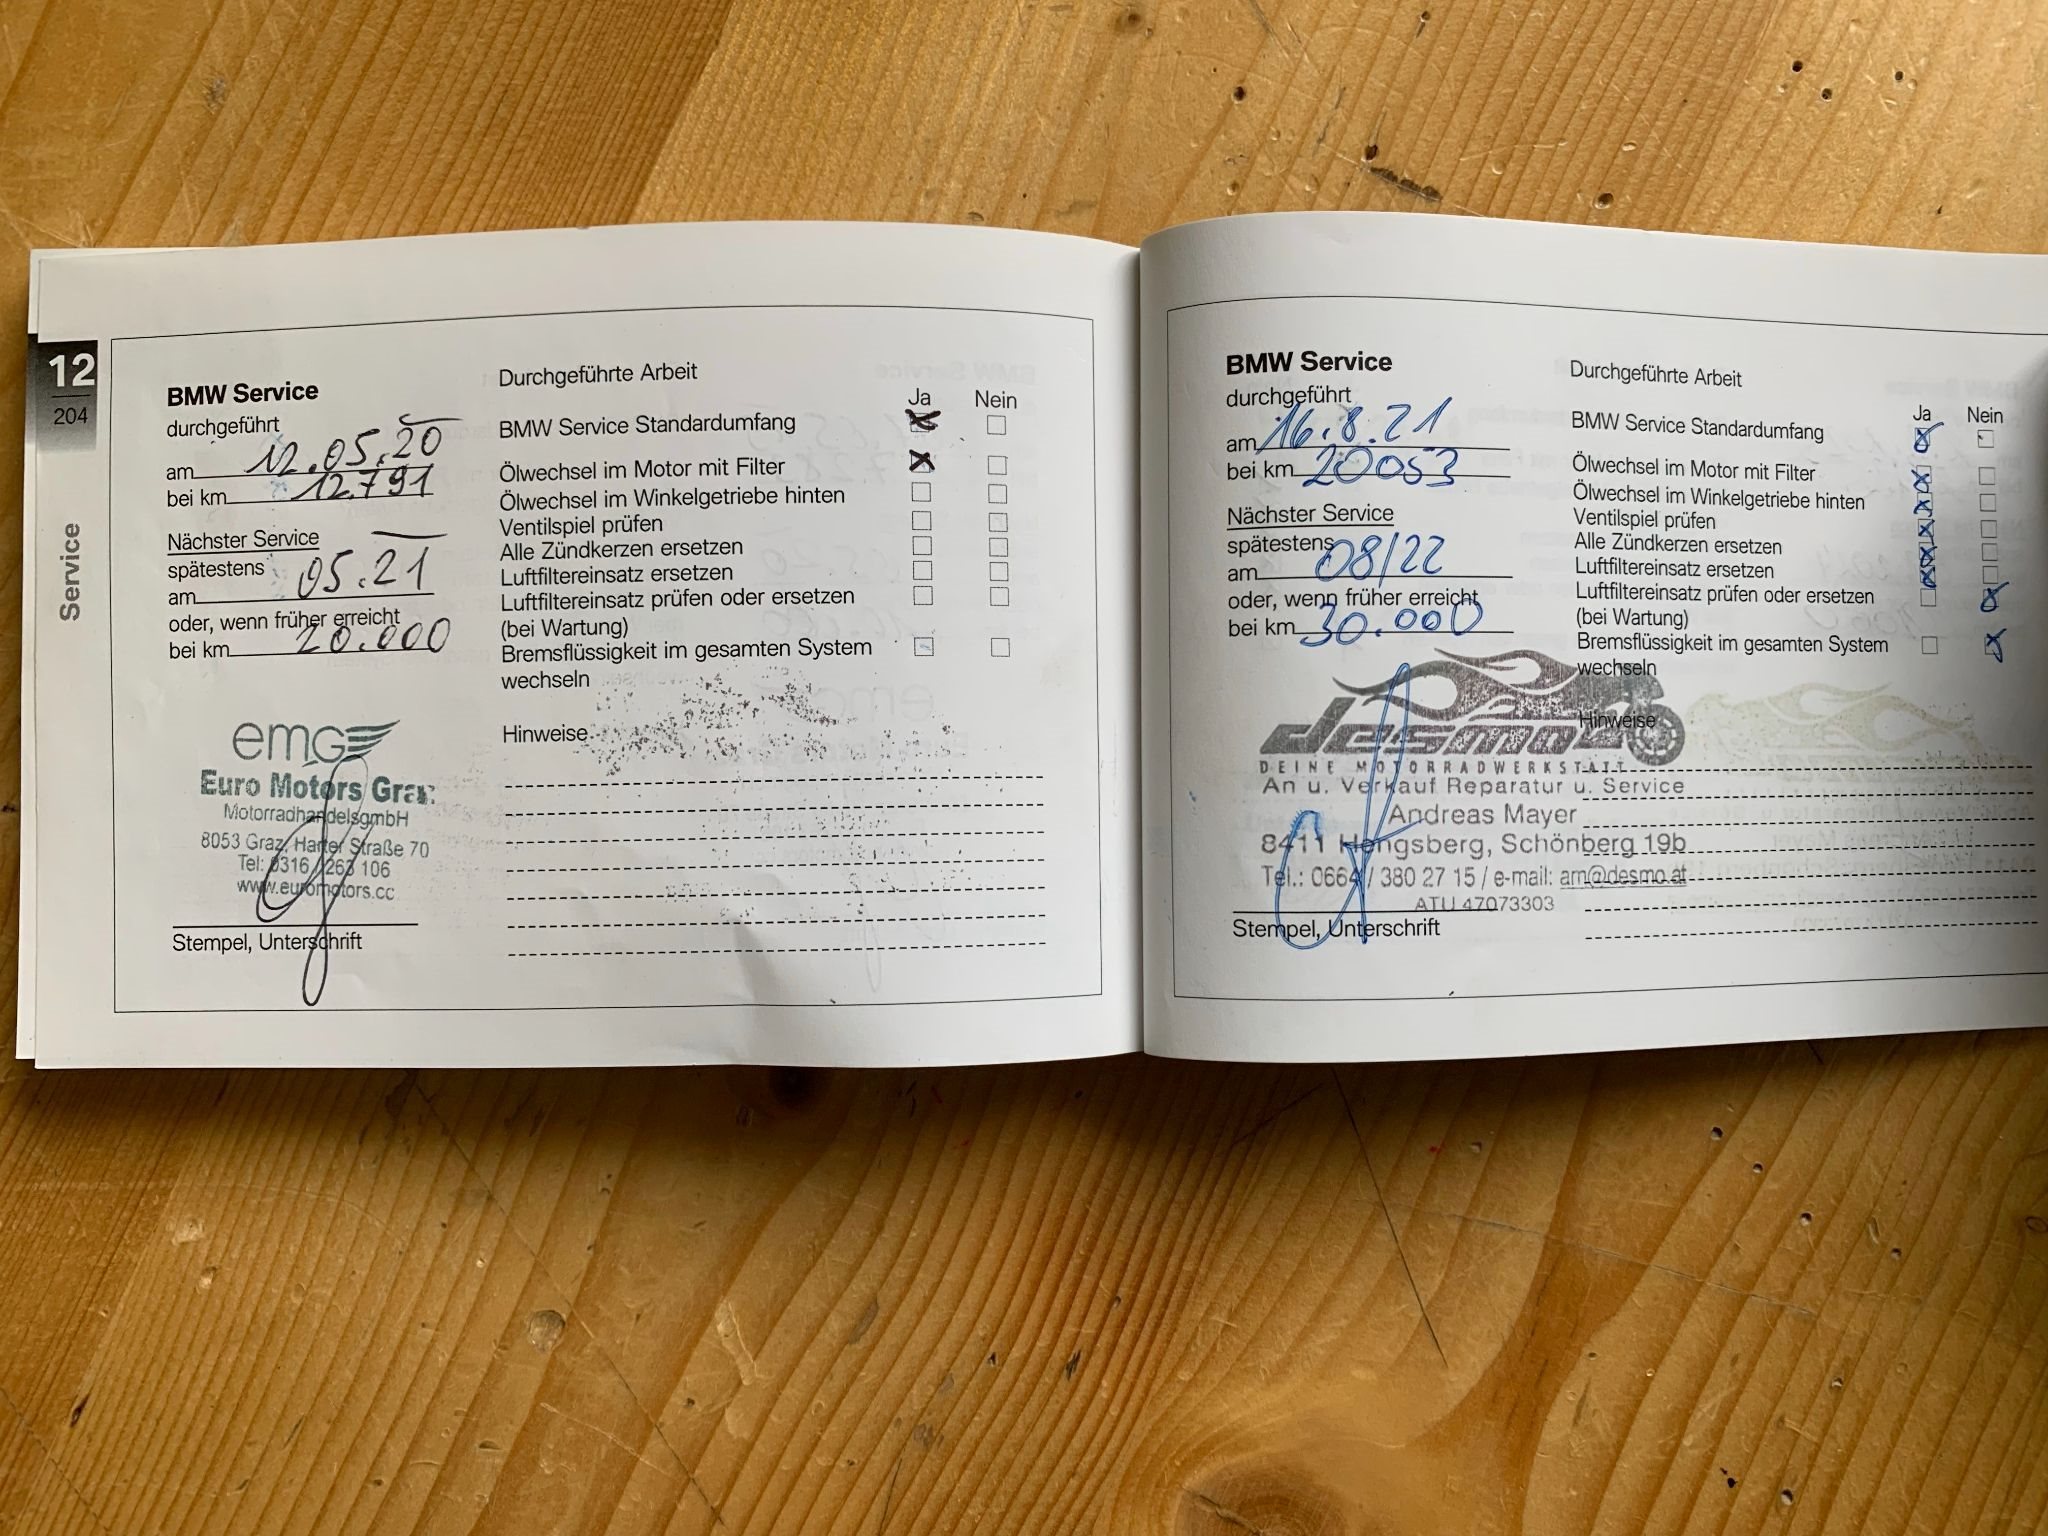 12
204
Service
BMW Service
durchgeführt
am 12.05.20
bei km 12.791
Nächster Service
spätestens
am 05.21
oder, wenn früher erreicht
bei km 20.000
emG
Euro Motors Graz
MotorradhandelsgmbH
8053 Graz, Harter Straße 70
Tel: 0316 / 263 106
www.euromotors.cc
Stempel, Unterschrift
Durchgeführte Arbeit
Ja Nein
BMW Service Standardumfang
Ölwechsel im Motor mit Filter
Ölwechsel im Winkelgetriebe hinten
Ventilspiel prüfen
Alle Zündkerzen ersetzen
Luftfiltereinsatz ersetzen
Luftfiltereinsatz prüfen oder ersetzen
(bei Wartung)
Bremsflüssigkeit im gesamten System
wechseln
Hinweise
BMW Service
durchgeführt
am 16.8.21
bei km 20053
Nächster Service
spätestens
am 08/22
oder, wenn früher erreicht
bei km 30.000
desmo
DEINE MOTORRADWERKSTATT
An u. Verkauf Reparatur u. Service
Andreas Mayer
8411 Hengsberg, Schönberg 19b
Tel.: 0664 / 380 27 15 / e-mail: am@desmo.at
ATU 47073303
Stempel, Unterschrift
Durchgeführte Arbeit
Ja Nein
BMW Service Standardumfang
Ölwechsel im Motor mit Filter
Ölwechsel im Winkelgetriebe hinten
Ventilspiel prüfen
Alle Zündkerzen ersetzen
Luftfiltereinsatz ersetzen
Luftfiltereinsatz prüfen oder ersetzen
(bei Wartung)
Bremsflüssigkeit im gesamten System
wechseln
Hinweise